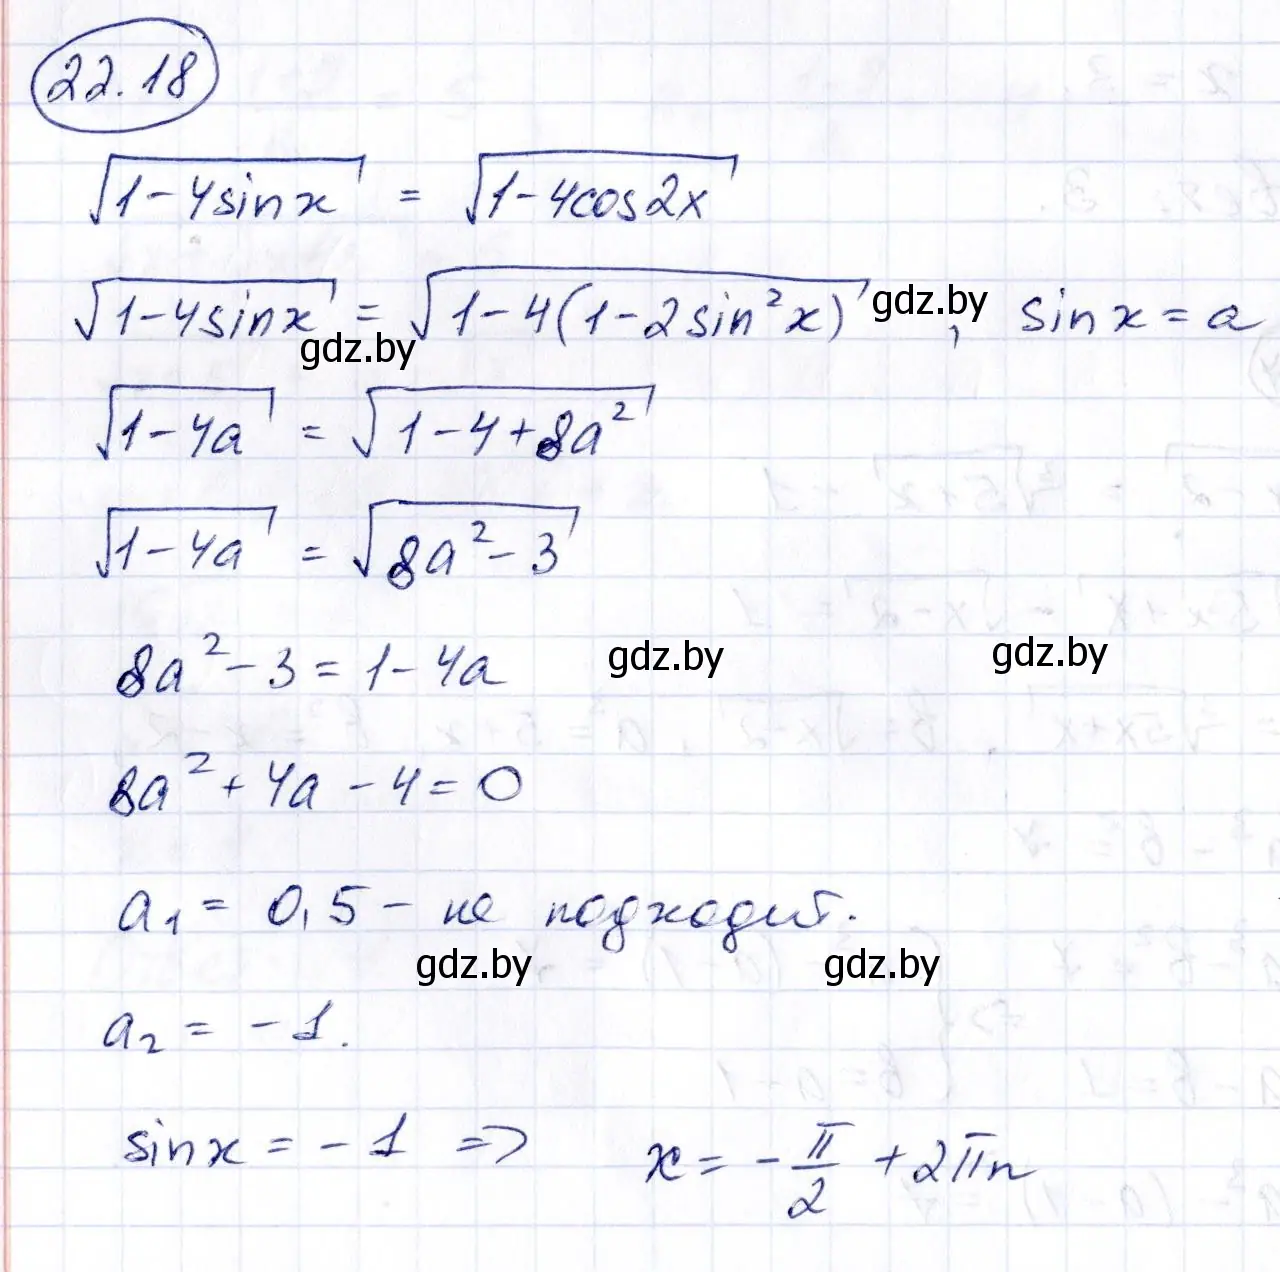 22.18
√(1-4sinx) = √(1-4cos2x)
√(1-4sinx) = √(1-4(1-2sin²x)), sinx = a
gdz.by
gdz.by
√(1-4a) = √(1-4+8a²)
√(1-4a) = √(8a²-3)
8a²-3 = 1-4a
gdz.by
gdz.by
8a²+4a-4=0
a₁ = 0,5 - не подходит.
gdz.by
gdz.by
a₂ = -1.
sinx = -1 => x = -π/2 + 2πn